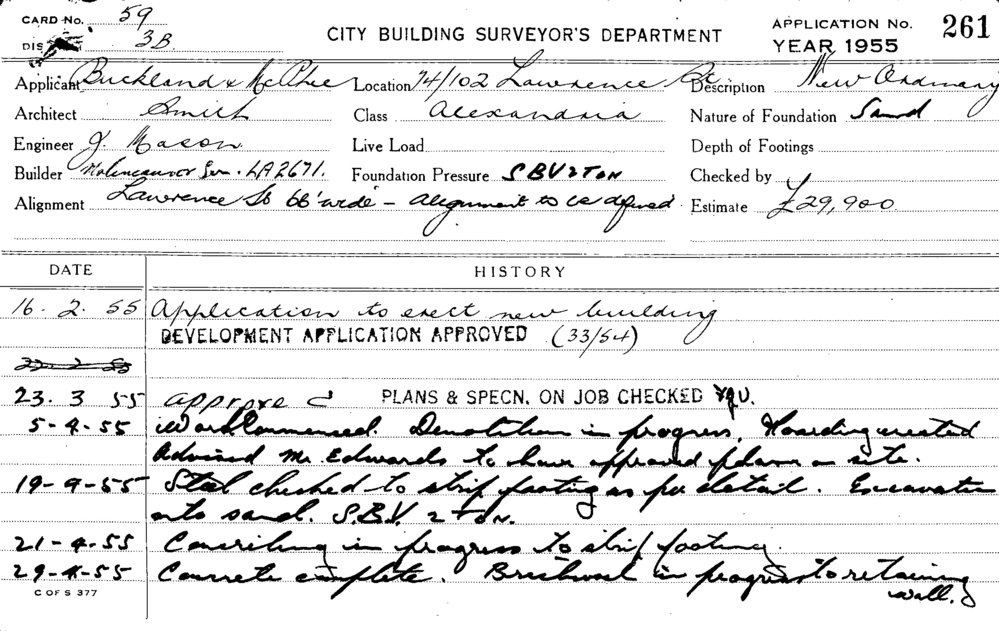 CARD No. 59
DIS 3B
CITY BUILDING SURVEYOR'S DEPARTMENT
APPLICATION No. 261
YEAR 1955
Applicant Buckland & McPhee Location 74/102 Lawrence St Description New Ordinary
Architect Smith Class Alexandria Nature of Foundation Sand
Engineer J. Mason Live Load Depth of Footings
Builder LA2671. Foundation Pressure S.B.V 2 TON Checked by
Alignment Lawrence St 66' wide – alignment to be defined Estimate £29,900
DATE HISTORY
16. 2. 55 Application to erect new building
DEVELOPMENT APPLICATION APPROVED (33/54)
22-2-55
23. 3 55 approved PLANS & SPECN. ON JOB CHECKED
5-4-55 Work Commenced. Demolition in progress. Hoarding erected
Advised Mr. Edwards to have approved plans on site.
19-4-55 Steel checked to strip footing as per detail. Excavation
into sand. S.B.V. 2 TON.
21-4-55 Concreting in progress to strip footing.
29-4-55 Concrete complete. Brickwork in progress to retaining
wall.
C OF S 377